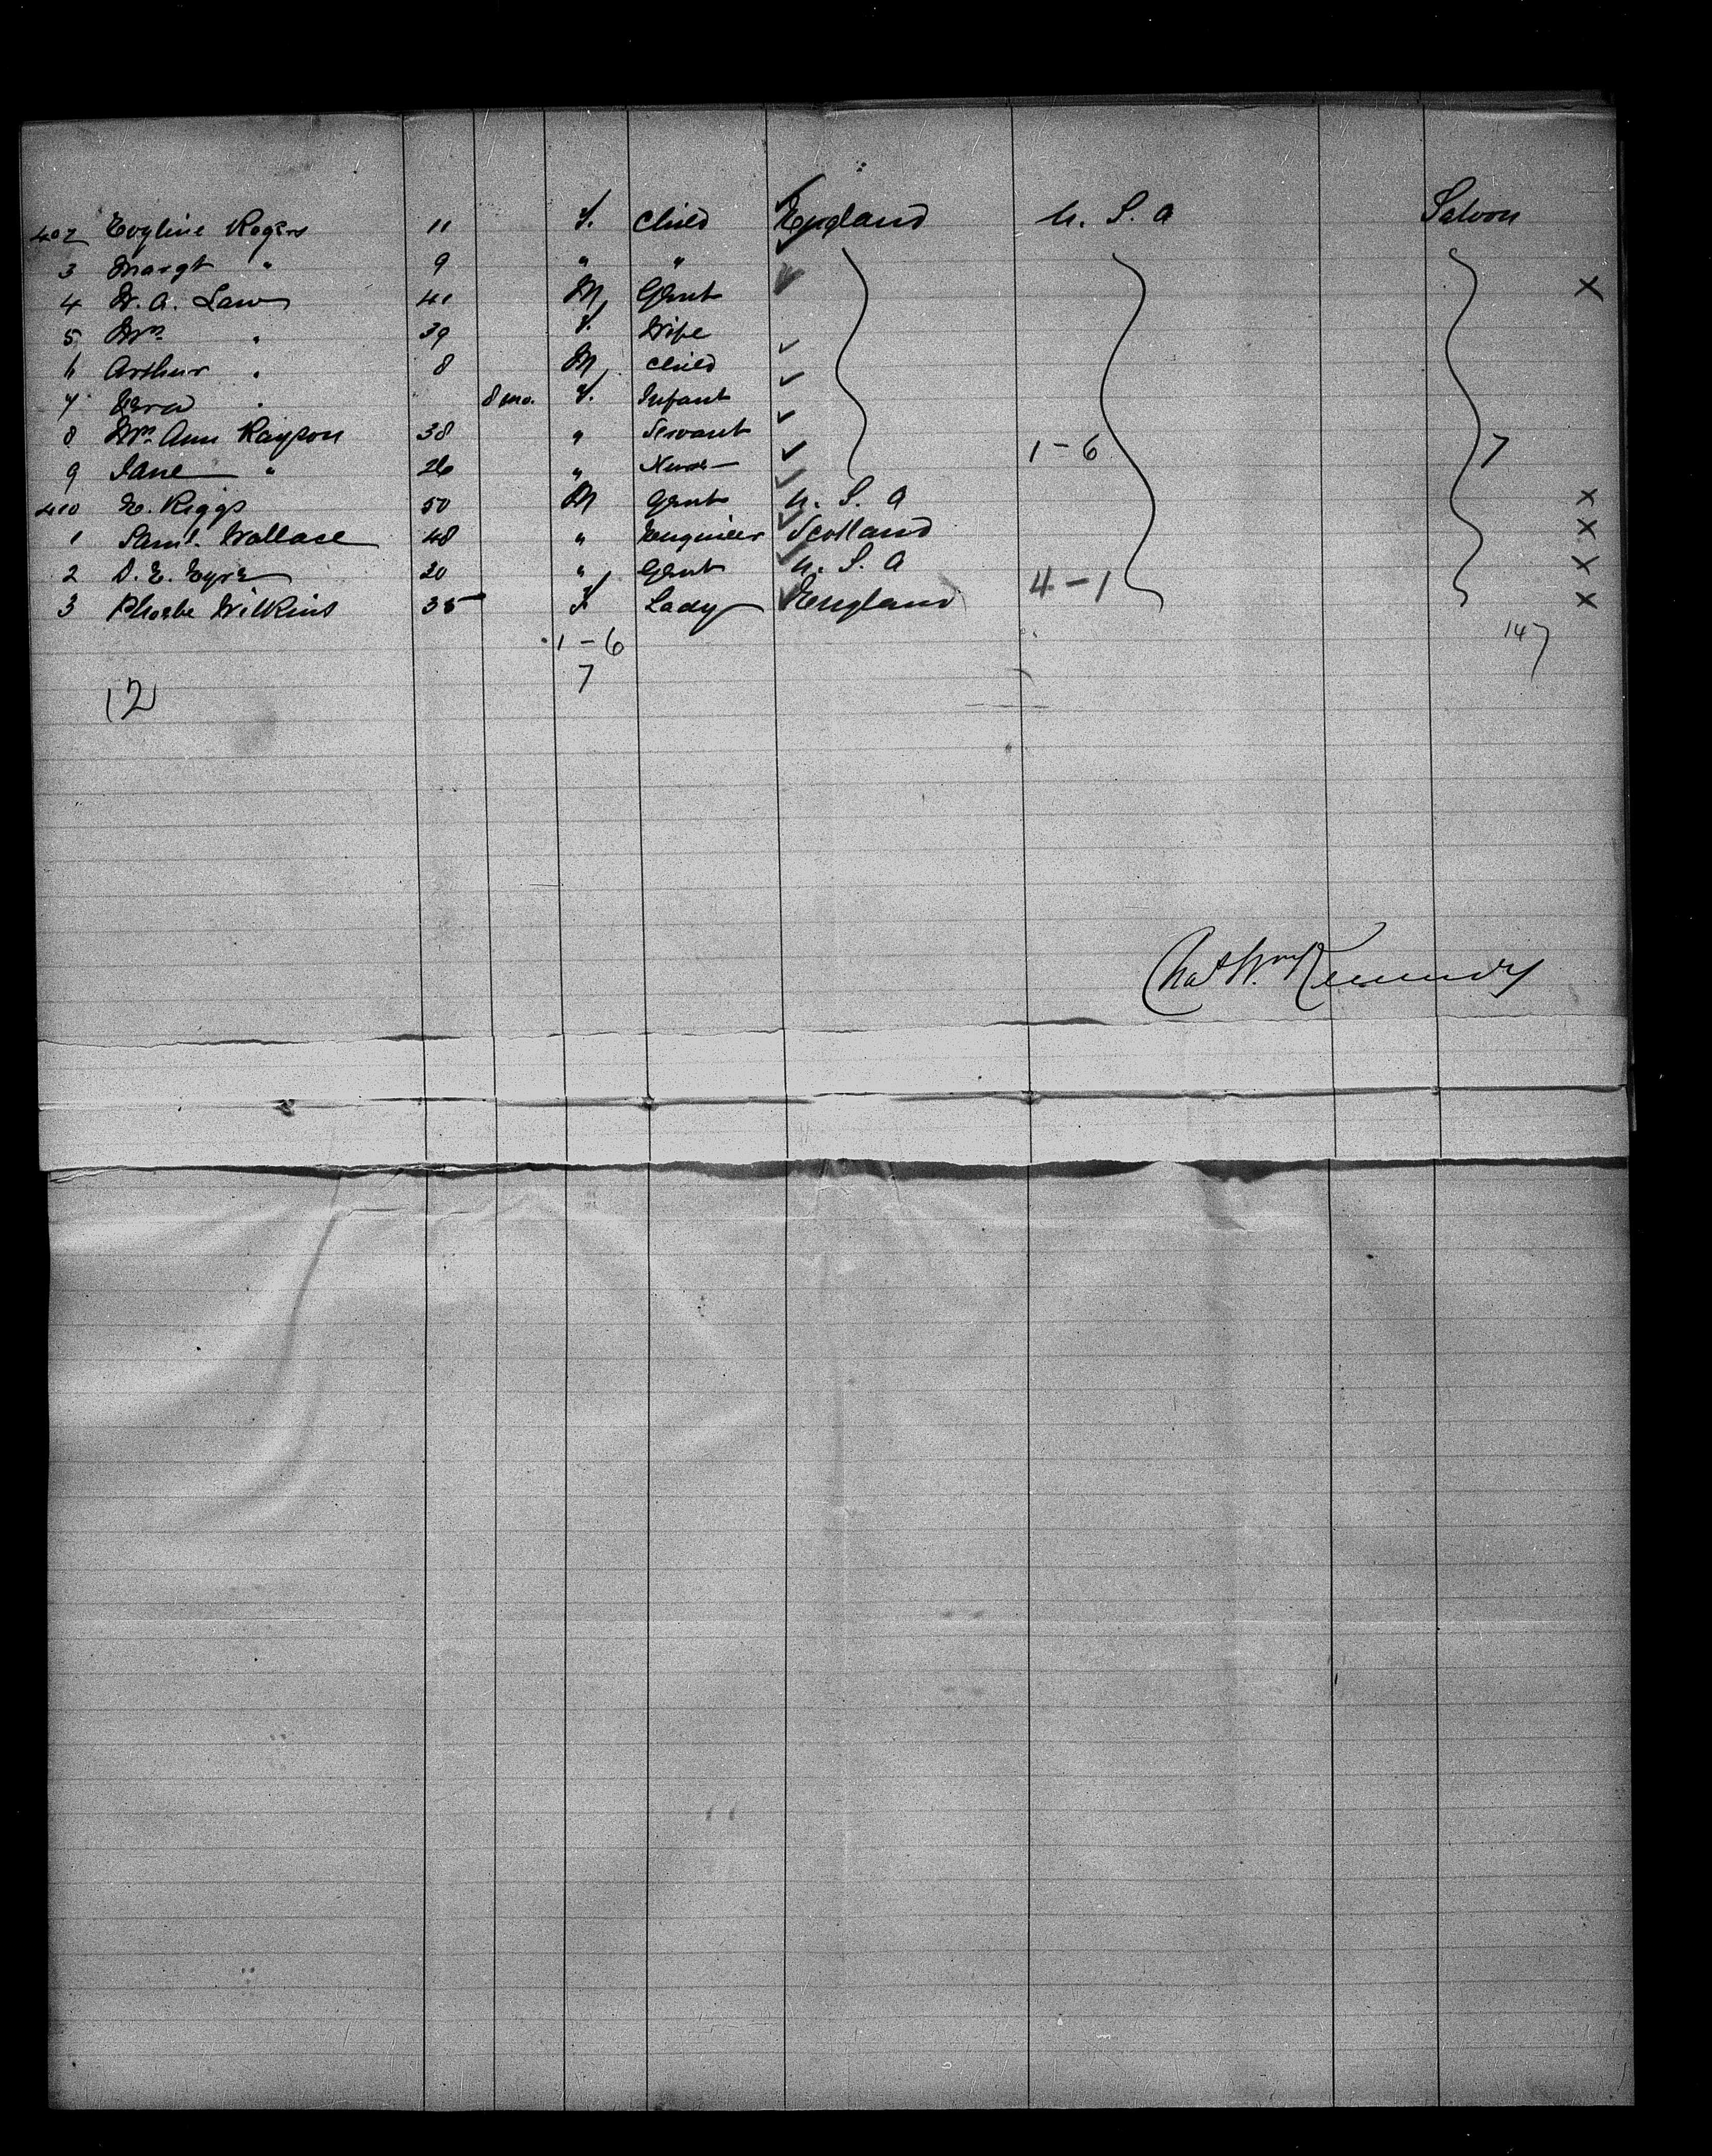 402 Evyline Rogers 11 F. Child England U. S. A Saloon
3 Margt " 9 " "
4 W. A. Law 41 M Gent x
5 Mrs " 39 F. Wife
6 Arthur " 8 M Child
7 " 8 mo. F. Infant
8 Mrs Ann Rayson 38 " Servant
9 Jane " 26 " Nurse 1-6 7
410 E. Riggs 50 M Gent U. S. A x
1 Saml. Wallace 48 " Engineer Scotland x
2 D. E. Eyre 20 " Gent U. S. A x
3 Phoebe Wilkins 35 F. Lady England 4-1 x
1-6 147
7
(2)
Chas Wm Kennedy